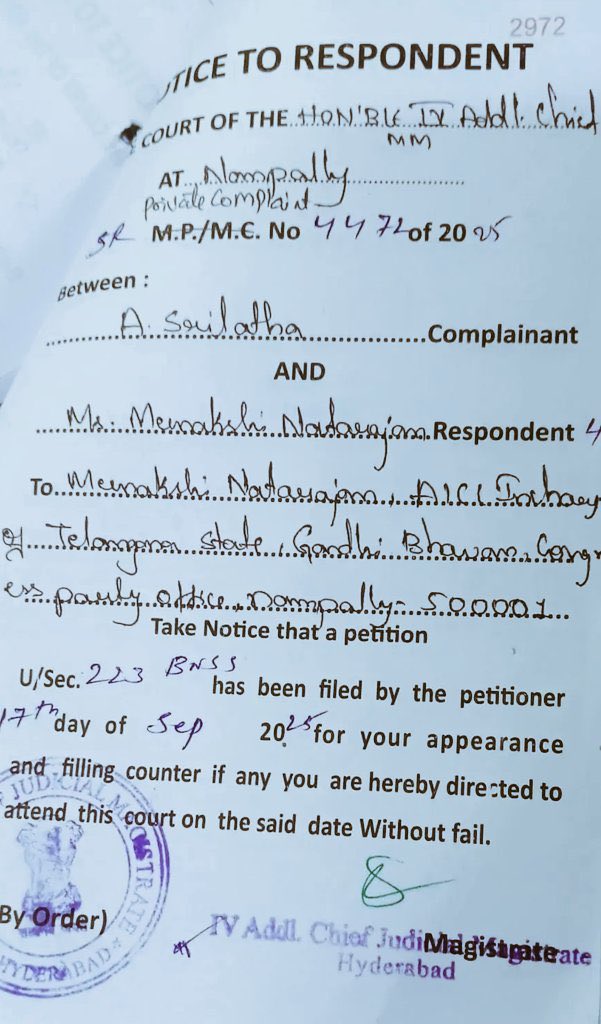 2972
TICE TO RESPONDENT
COURT OF THE HON'BLE IV Addl. Chief
MM
AT Nampally
private Complaint
SR M.P./M.C. No 4472 of 2025
Between :
A. Srilatha Complainant
AND
Ms. Meenakshi Natarajan. Respondent 4
To Meenakshi Natarajan, AICC
of Telangana State, Gandhi Bhavan, Congr
ess party office, Nampally - 500001
Take Notice that a petition
U/Sec. 223 BNSS has been filed by the petitioner
17th day of Sep 2025 for your appearance
and filling counter if any you are hereby directed to
attend this court on the said date Without fail.
(By Order)
Magistrate
IV Addl. Chief Judicial Magistrate
Hyderabad
JUDICIAL MAGISTRATE
HYDERABAD